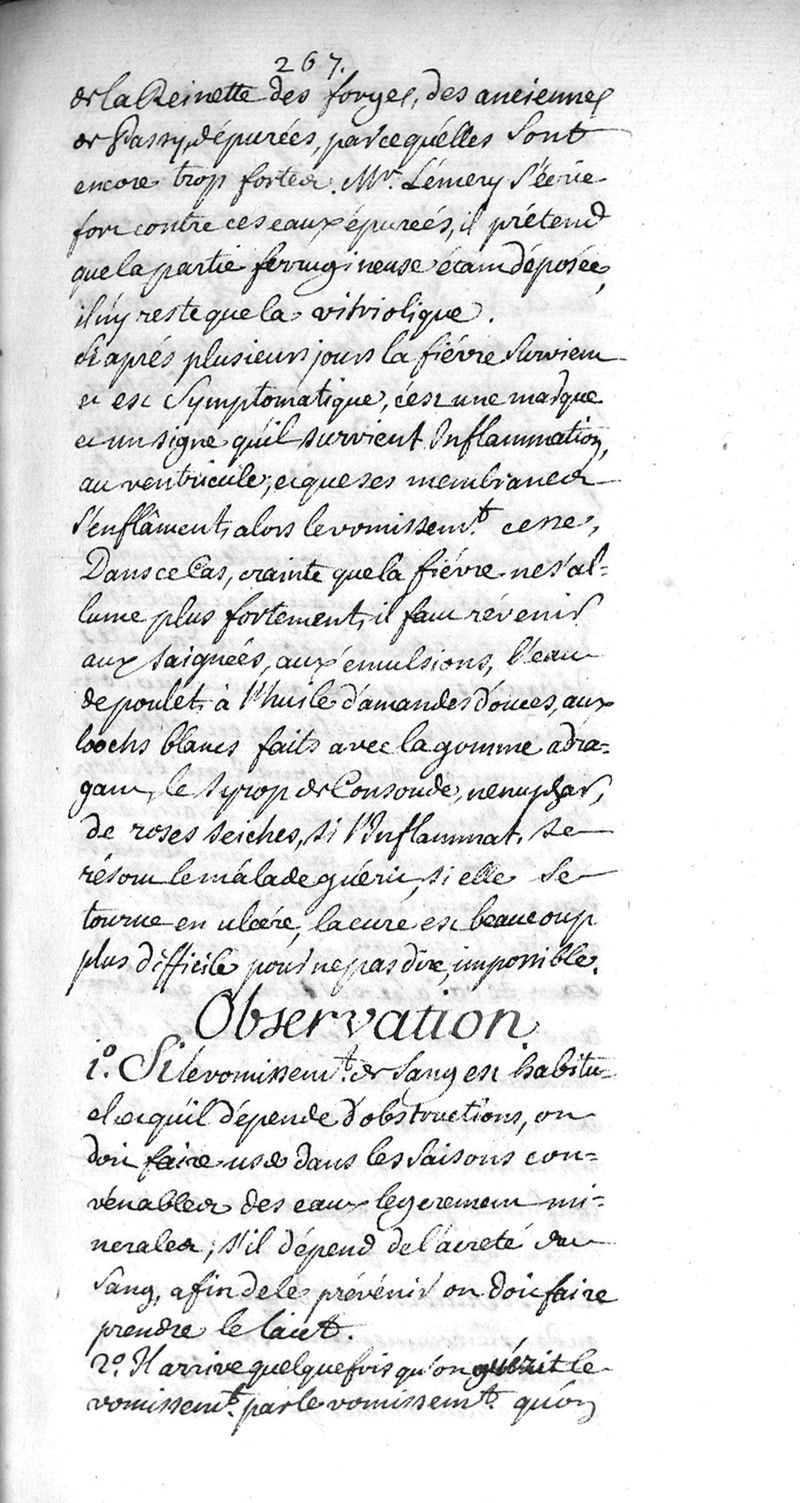 267.
de la Reinette des forges, des anciennes
de Passy, dépurées, parce qu'elles sont
encore trop fortes. Mr. Lémery s'écrie
fort contre ces eaux épureés, il prétend
que la partie ferrugineuse étant déposée,
il n'y reste que la vitriolique.
Si aprés plusieurs jours la fiévre survient
et est Symptomatique, c'est une marque
et un signe qu'il survient Inflammation,
au ventricule, et que ses membranes
s'enflâment, alors le vomissemt. cesse,
Dans ce Cas, crainte que la fiévre ne s'al=
lume plus fortement, il faut révenir
aux saignées, aux émulsions, l'eau
de poulet, à l'huile d'amandes douces, aux
loochs blancs faits avec la gomme adra=
gant, le syrop de Consoude, nenuphar,
de roses seiches, si l'Inflammat. se
résout le malade guérit, si elle se
tourne en ulcére, la cure est beaucoup
plus difficile pour ne pas dire, impossible.
Observation.
1°. Si le vomissemt. de Sang est habitu=
el et qu'il dépende d'obstructions, on
doit faire user dans les Saisons con=
vénables des eaux legerement mi=
nerales, s'il dépend de l'âcreté du
Sang, afin de le prévénir on doit faire
prendre le lait.
2°. Il arrive quelque fois qu'on guérit le
vomissemt. par le vomissemt. qu'on